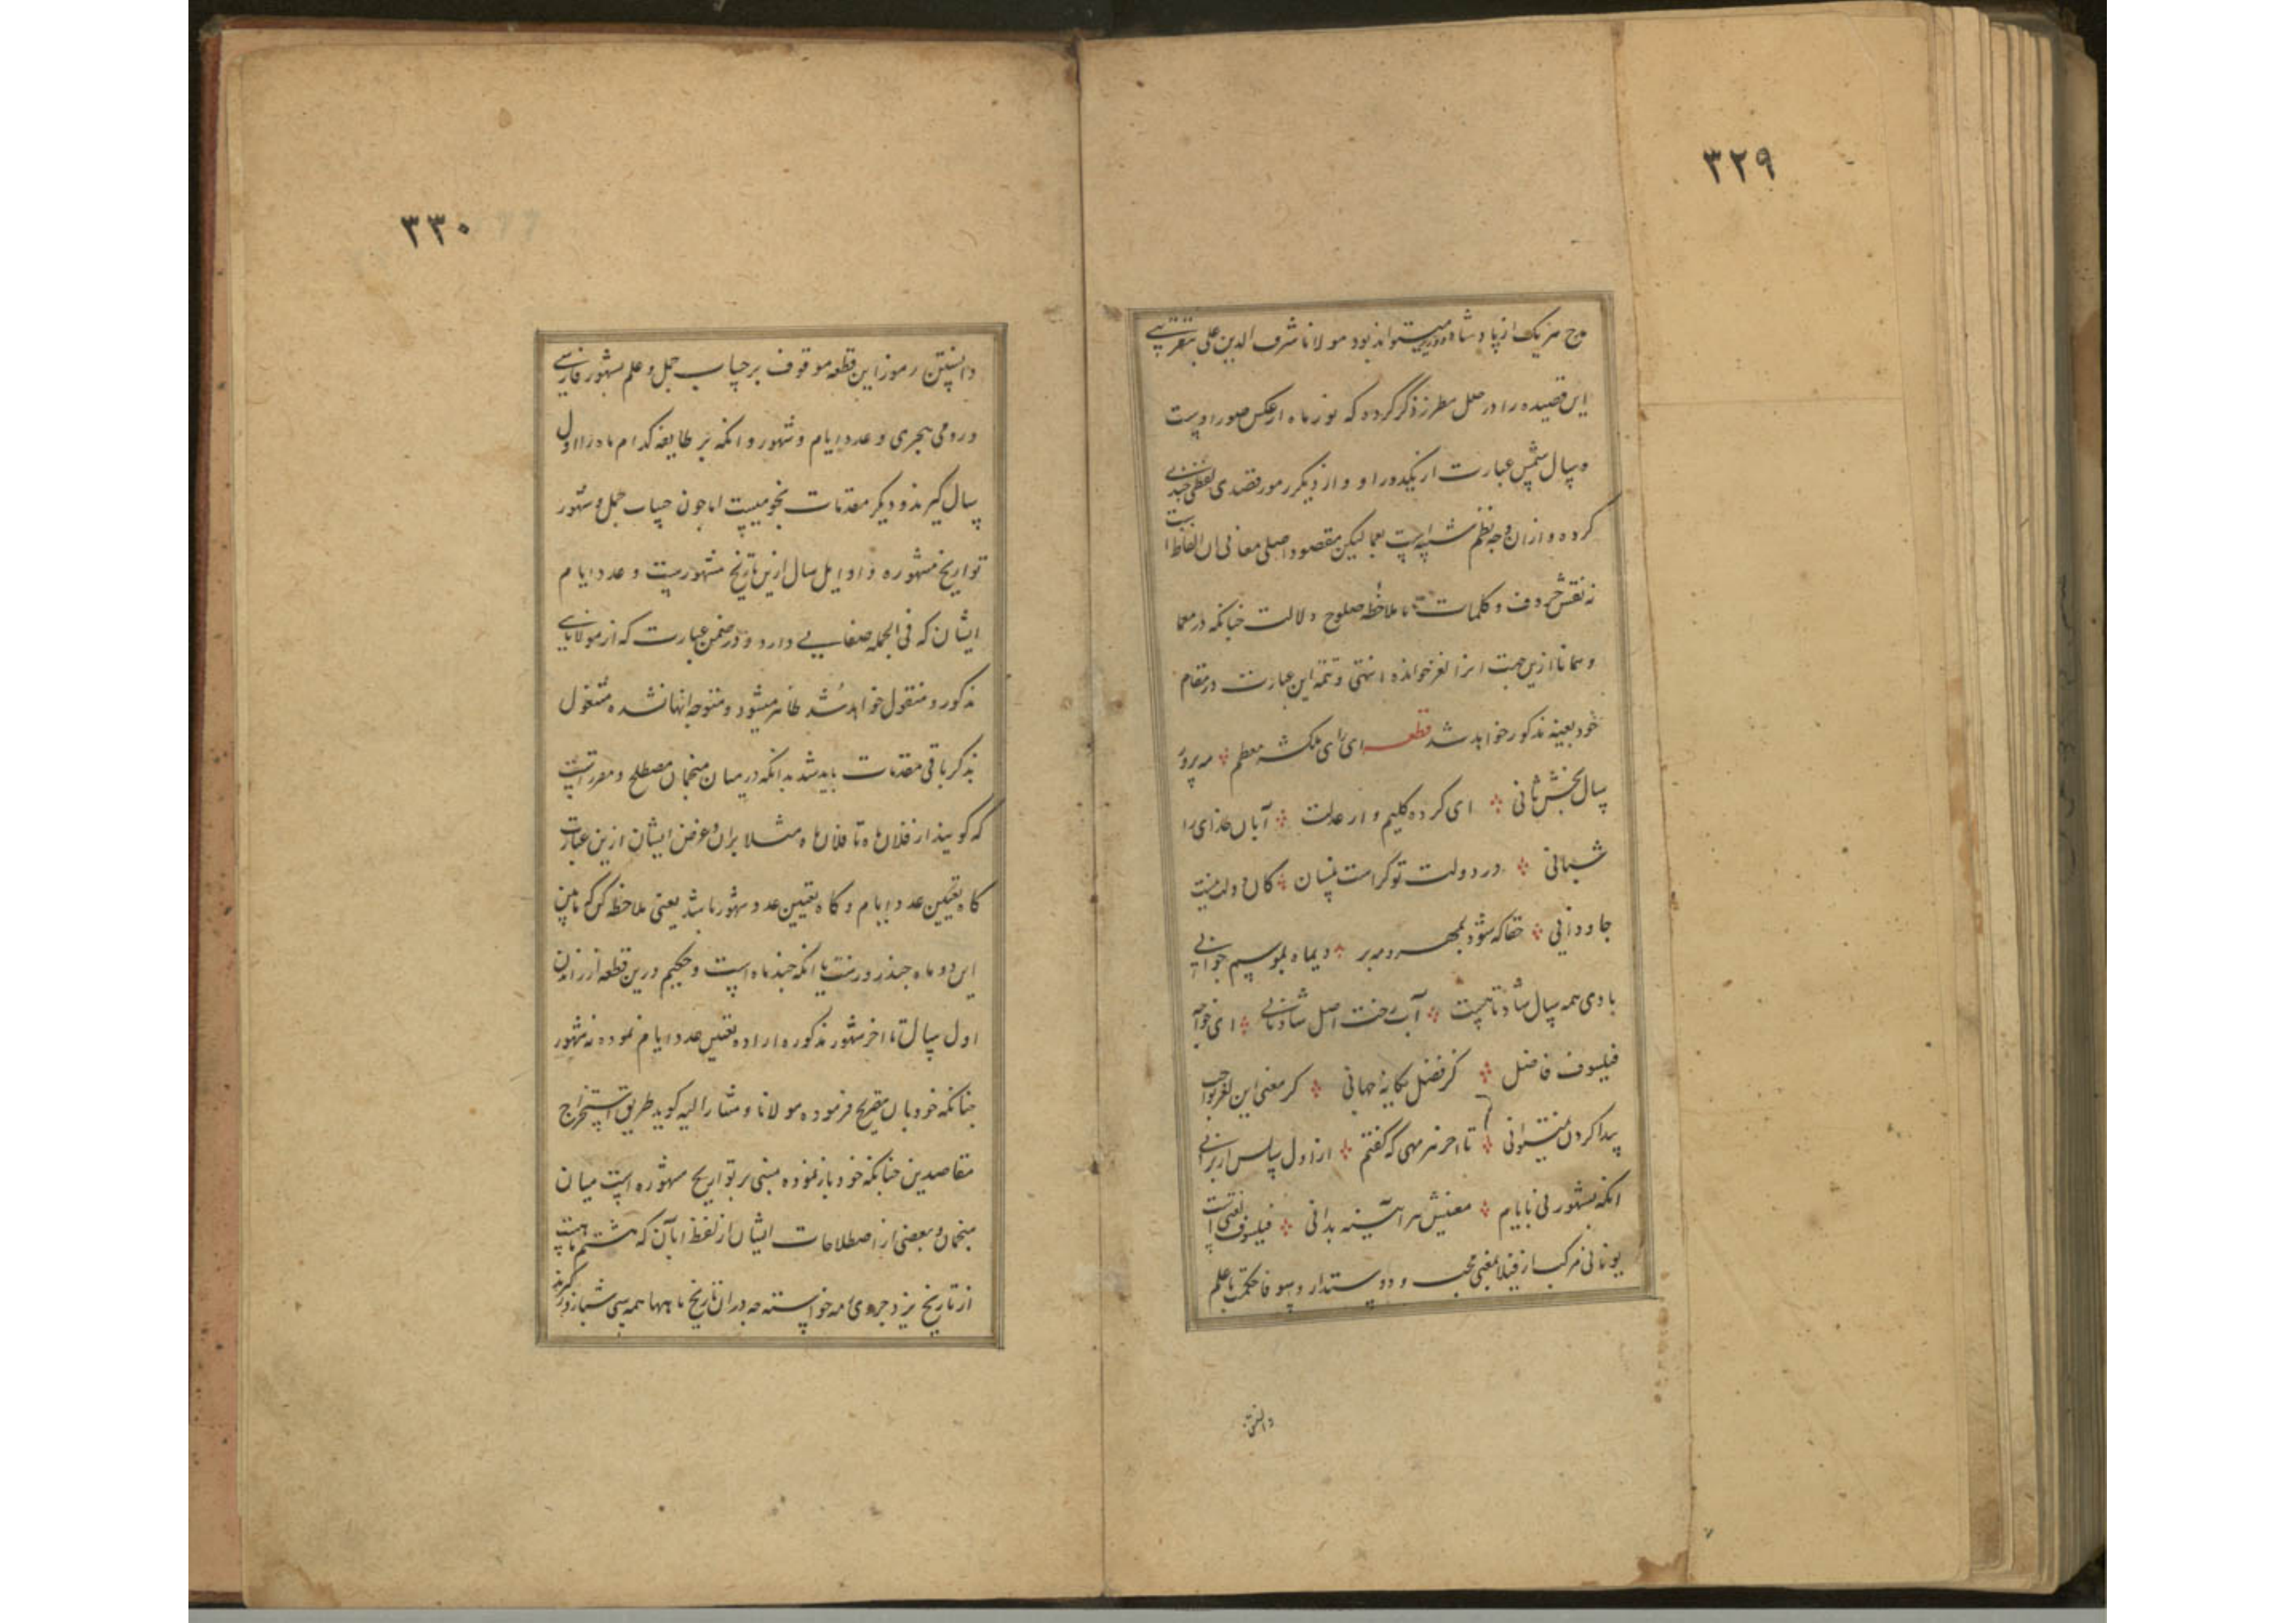 ۳۲۹
مدح هر یک از پادشاه و وزیر میتواند بود مولانا شرف الدین علی
این قصیده را در حلل مطرز ذکر کرده که نور ماه از عکس صور اوست
و سال شمس عبارت از یکدور او و از دیگر رموز قصدی لفظی چندی
کرده و ازان وجه نظم شبیه است بمعما لیکن مقصود اصلی معانی ان الفاظ است
نه نقش حروف و کلمات با ملاحظه صلوح دلالت چنانکه در معما
و همانا ازین جهت انرا لغز خوانده انتهی و تتمه این عبارت در مقام
خود بعینه مذکور خواهد شد قطعه ای رای ملکشه معظم مه پرور
سال بخش ثانی ای کرده کلیم وار عدلت آبان خدای را
شبانی در دولت تو کرامت نیسان کان دولت تست
جاودانی حقا که شود بمهر و مه بر دیماه بموسم جوانی
بادی همه سال شاد تا هست آب رخت اصل شادمانی ای خواجه
فیلسوف فاضل کز فضل یگانهٔ جهانی گر معنی این لغز بواجب
پیدا کردن نمیتوانی تا اخر هر مهی که گفتم از اول سالش ار برانی
انکه بشهور نی بایام معنیش هر آینه بدانی فیلسوف لغتی است
یونانی مرکب از فیلا بمعنی محب و دوستدار و سوفا حکمت یا علم
دانستن
۳۳۰
دانستن رموز این قطعه موقوف بر حساب جمل و علم بشهور فارسی
و رومی و هجری و عدد ایام و شهور و انکه هر طایفه کدام ماه را اول
سال گیرند و دیگر مقدمات نجومیست اما چون حساب جمل و شهور
تواریخ مشهوره و اوایل سال ازین تاریخ مشهورست و عدد ایام
ایشان که فی الجمله خفایی دارد و در ضمن عبارت که از مولانای
مذکور منقول خواهد شد ظاهر میشود و متوجه انها نشده مشغول
بذکر باقی مقدمات باید شد بدانکه در میان منجمان مصطلح و مقرر است
که گویند از فلان ماه تا فلان ماه مثلا بران و غرض ایشان ازین عبارت
گاه تعیین عدد ایام و گاه تعیین عدد شهور باشد یعنی ملاحظه کن که مابین
این دو ماه چند روزست یا انکه چند ماه است و حکیم درین قطعه از راندن
اول سال تا اخر شهور مذکوره اراده تعیین عدد ایام نموده نه شهور
چنانکه خود بان تصریح فرموده مولانا و مشار الیه گوید طریق استخراج
مقاصدین چنانکه خود باز نموده مبنی بر تواریخ مشهوره است میان
منجمان و بعضی از اصطلاحات ایشان از لفظ ابان که هشتم ماهست
از تاریخ یزدجردی مه خواسته چه دران تاریخ ماهها همه سی شبانروز گیرند